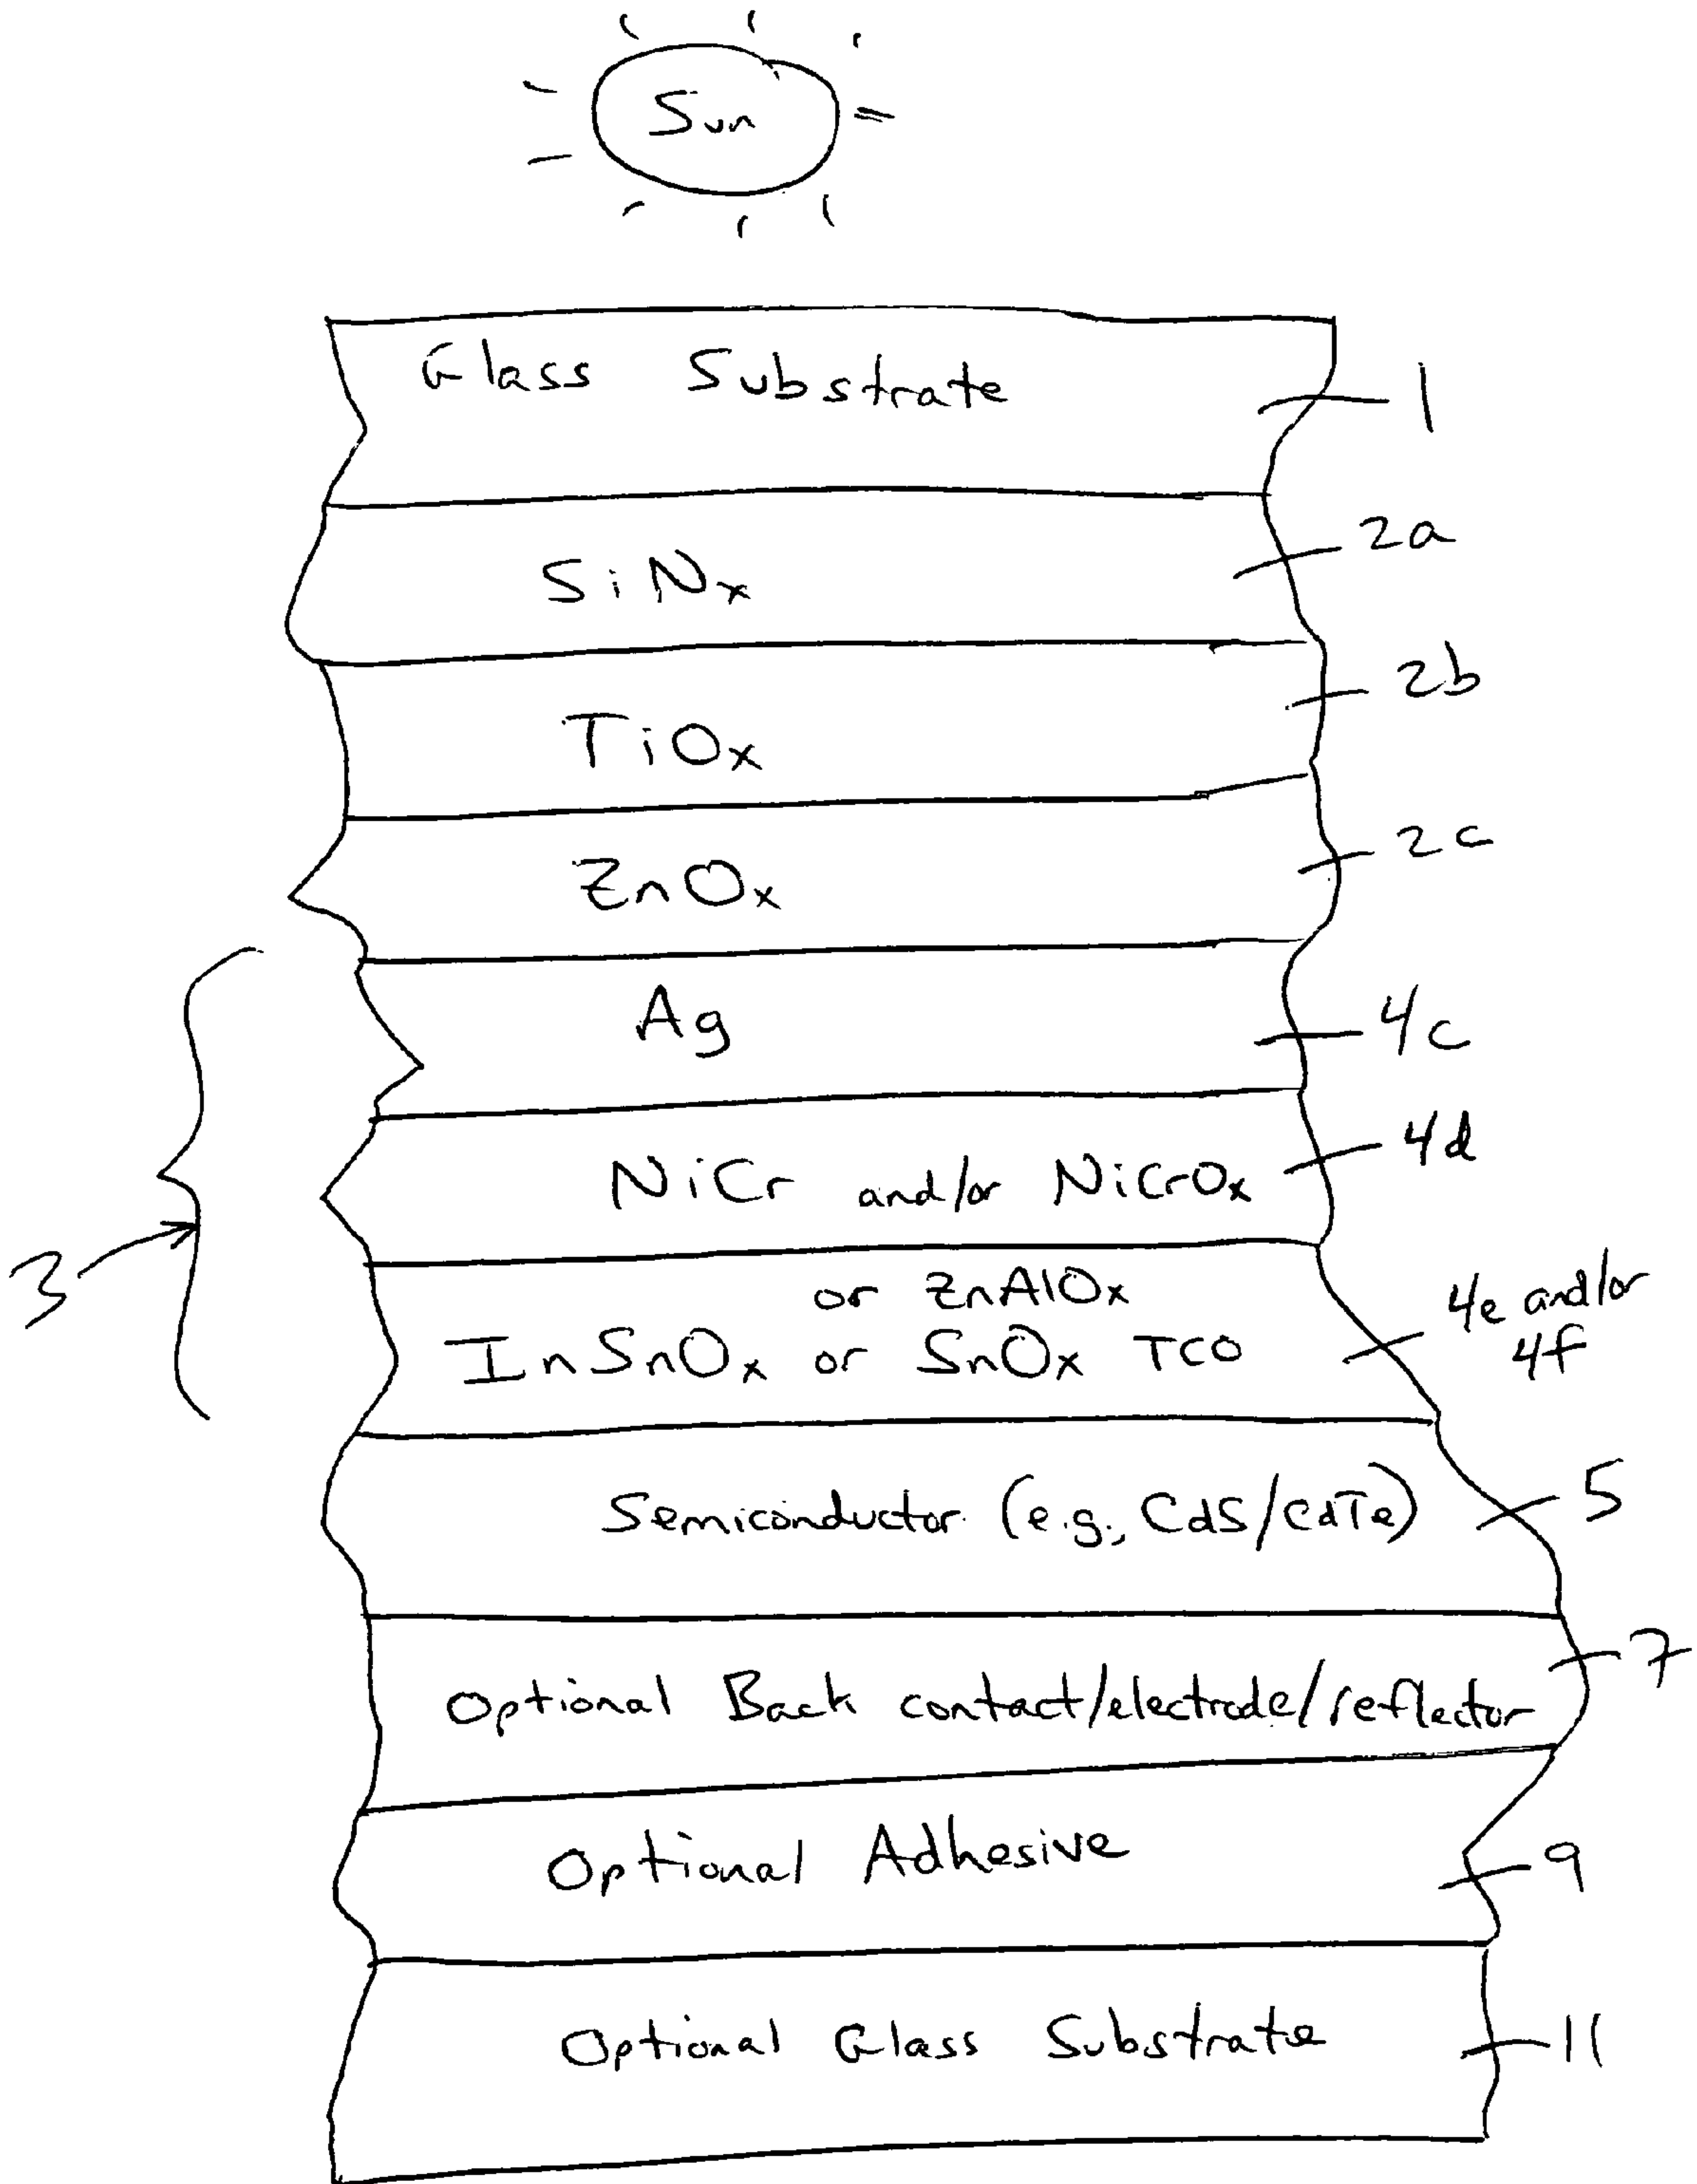 Sun
Glass Substrate
1
SiNx
2a
TiOx
2b
ZnOx
2c
Ag
4c
NiCr and/or NiCrOx
4d
3
or ZnAlOx
InSnOx or SnOx TCO
4e and/or
4f
Semiconductor (e.g., CdS/CdTe)
5
Optional Back contact/electrode/reflector
7
Optional Adhesive
9
Optional Glass Substrate
11